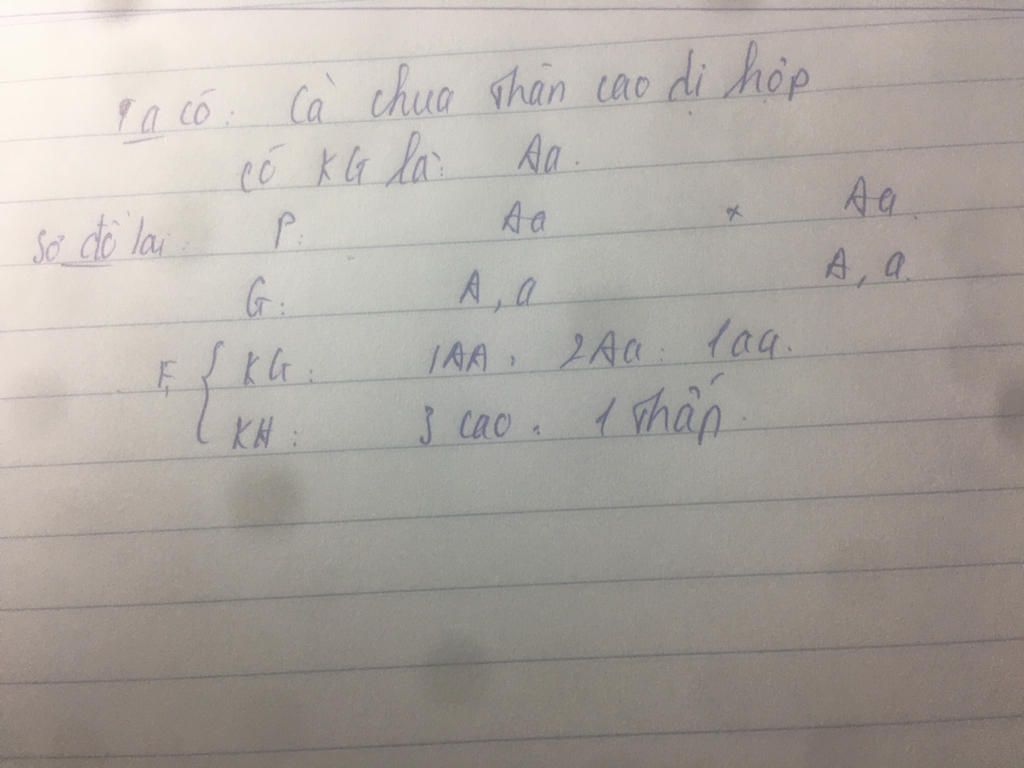 Ta có: Cà chua thân cao dị hợp
có KG là: Aa.
Sơ đồ lai: P: Aa × Aa.
G: A, a A, a.
F₁ { KG: 1AA : 2Aa : 1aa.
KH: 3 cao : 1 thấp.